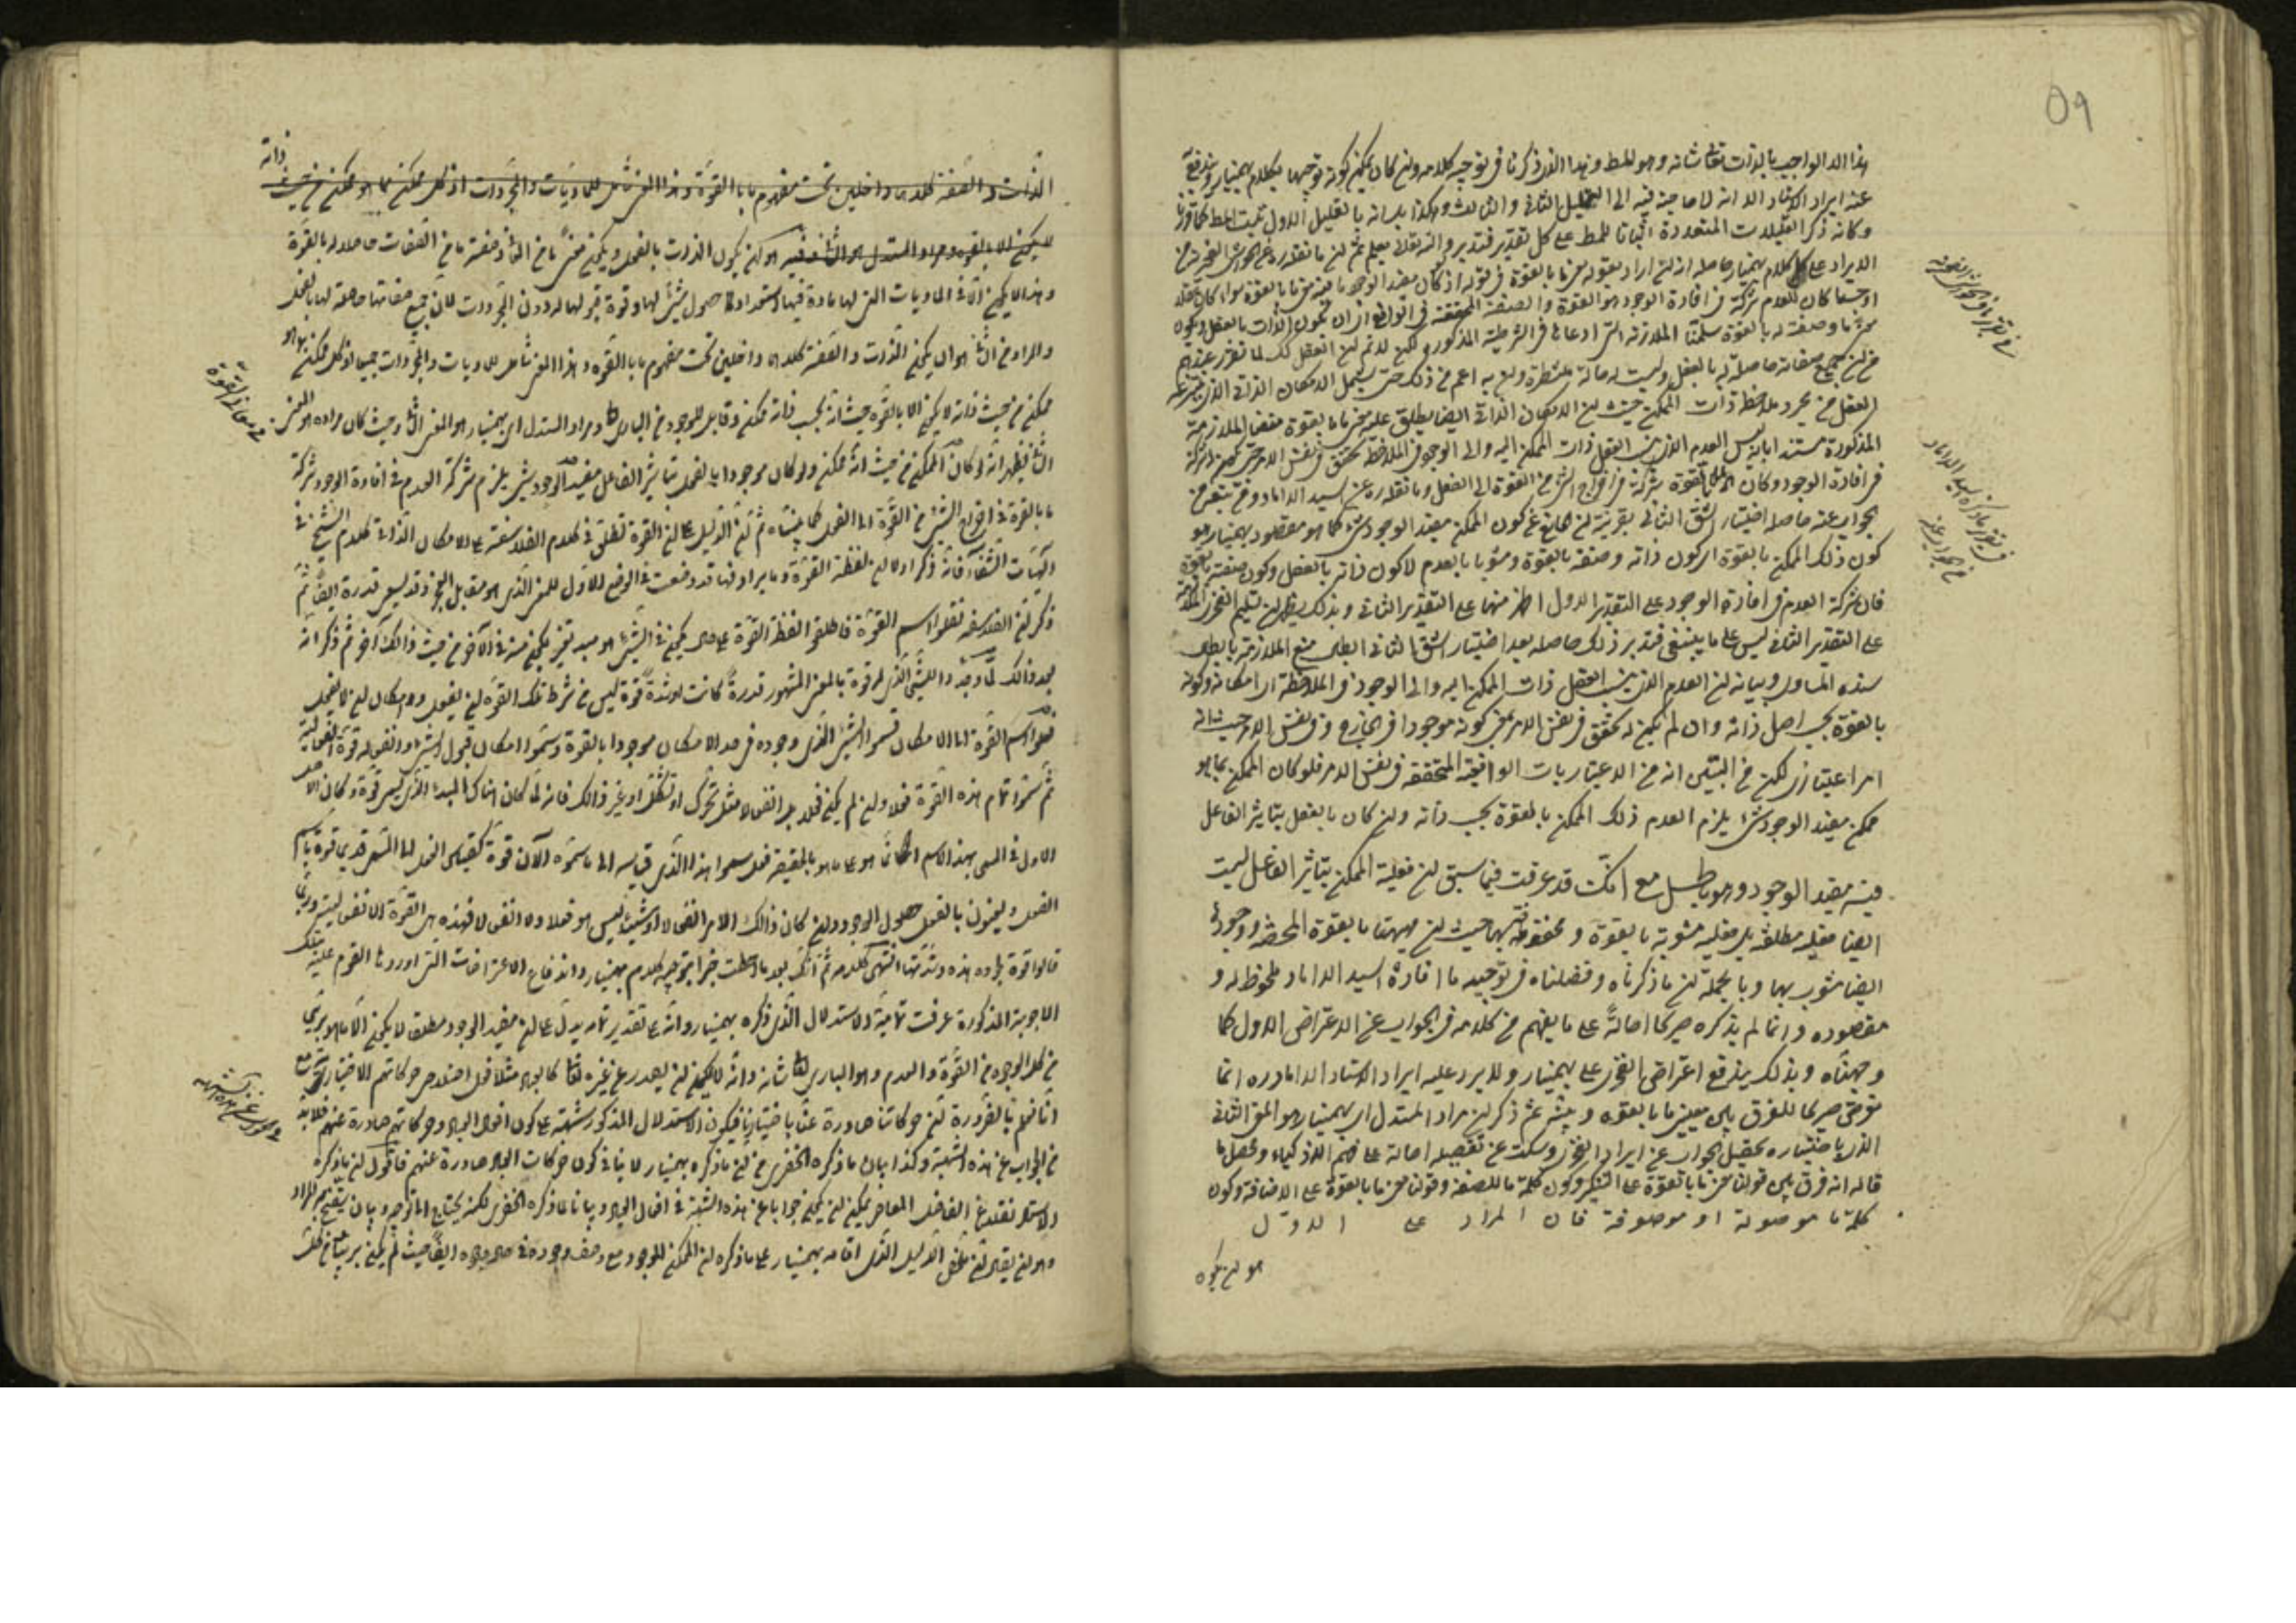 ٥٩
هذا الا الواجب بالذات تعالى شانه وهو المط وهذا الذي ذكرنا في توجيه كلامه وان كان يمكن كونه توجيها لكلام بهمنيار ويندفع
عنه ايراد الاستاد الا انه لا حاجة فيه الى التعليل الثاني والثالث وهكذا بيانه بالتعليل الاول يثبت المط كما قررنا
وكانه ذكر التعليلات المتعددة اثباتا للمط على كل تقدير فتدبر والله تعالى يعلم ثم ان ما نقله عن
الايراد على كلام بهمنيار حاصله انه ان اراد بقوله معنى ما بالقوة في قوله اذ كان مفيد الوجود ما فيه معنى ما بالقوة سواء كان
كان للعدم شركة في افادة الوجود هو القوة والصفة المحققة في الواقع اي ان يكون الذات بالفعل ويكون
ما وصفة له بالقوة سلمنا الملازمة التي ادعاها في الشرطية المذكورة لكن لا نم ان العقل كك لما تقرر عندهم
من ان جميع صفاته حاصلة له بالفعل وليست له حالة منتظرة وان اعم من ذلك حتى يشمل الامكان الذاتي الذي
العقل من مجرد ملاحظة ذات الممكن حيث ان الامكان الذاتي ايضا يطلق عليه معنى ما بالقوة منعنا الملازمة
المذكورة مستندا بانه ليس العدم الذي ينسب العقل ذات الممكن اليه والى الوجود في الملاحظة تحقق في نفس الامر حتى يكون له شركة
في افادة الوجود وكان لما بالقوة شركة في اخراج الشئ من القوة الى الفعل وما نقله عن السيد الداماد
الجواب عنه حاصله اختيار الشق الثاني بقرينة ان كون الممكن مفيد الوجود شئ كما هو مقصود بهمنيار هو
كون ذلك الممكن بالقوة اي كون ذاته وصفته بالقوة ومشوبا بالعدم لا كون ذاته بالفعل وكون صفته بالقوة
فان شركة العدم في افادة الوجود على التقدير الاول اظهر منها على التقدير الثاني وبذلك يظهر ان تسليم الفخري الملازمة
على التقدير الثاني ليس على ما ينبغي فتدبر ذلك حاصله بعد اختيار الشق الثاني ابطال منع الملازمة بابطال
سنده المساوي وبيانه ان العدم الذي ينسب العقل ذات الممكن اليه والى الوجود في الملاحظة اي امكانه وكونه
بالقوة بحسب اصل ذاته وان لم يكن له تحقق في نفس الامر بمعنى كونه موجودا في الخارج وفي نفس الامر حيث انه
امر اعتباري لكن من البين انه من الاعتباريات الواقعية المتحققة في نفس الامر فلو كان الممكن بما هو
ممكن مفيد الوجود شئ يلزم العدم ذلك الممكن بالقوة بحسب ذاته وان كان بالفعل بتاثير الفاعل
فيه مفيد الوجود وهو باطل مع انك قد عرفت فيما سبق ان فعلية الممكن بتاثير الفاعل ليست
ايضا فعلية مطلقة بل فعلية مشوبة بالقوة ومحفوفة بها حيث ان مهيتها بالقوة المحضة ووجودها
ايضا مشوب بها وبالجملة ان ما ذكرناه وفصلناه في توجيه ما افاده السيد الداماد ملحوظ له و
مقصوده وانما لم يذكره صريحا احالة على ما يفهم من كلامه في الجواب عن الاعتراض الاول كما
وجهناه وبذلك يندفع اعتراض الفخري على بهمنيار ولا يرد عليه ايراد الاستاد الداماد ره انما
تعرض صريحا للفرق بين معنيي ما بالقوه و ثم ذكر ان مراد المستدل اي بهمنيار هو المعنى الثاني
الذي باختياره يحصل الجواب عن ايراد الفخري وسكت عن تفصيله احالة على فهم الاذكياء ومحصل ما
قاله انه فرق بين قولنا معنى ما بالقوة على التنكير وكون كلمة ما للصفة وقولنا معنى ما بالقوة على الاضافة وكون
كلمة ما موصولة او موصوفة فان المراد على الاول
هو ان يكون
الذات والصفة كلاهما داخلين تحت مفهوم ما بالقوة وهذا المعنى شامل للماديات والمجردات اذ كل ممكن مما هو ممكن من حيث ذاته
لا يكون الا بالقوه ومراد المستدل هو الثاني وفيه هو ان يكون الذات بالفعل ويكون معنى ما من الذات وصفة ما من الصفات حاصلا له بالقوة
وهذا لا يكون الا في الماديات التي لها مادة فيها استعداد حصول شئ لها وقوة قبولها له دون المجردات لان جميع صفاتها حاصلة لها بالفعل
والمراد من الثاني هو ان يكون الذات والصفة كلاهما داخلين تحت مفهوم ما بالقوه وهذا المعنى شامل للماديات والمجردات جميعا اذ كل ممكن بما هو
ممكن من حيث ذاته لا يكون الا بالقوه حيث انه بحسب ذاته ممكن وقابل للوجود من الباري تعالى ومراد المستدل اي بهمنيار هو المعنى الثاني وحيث كان مراده هو المعنى
في معاني القوة
الثاني فيظهر انه لو كان الممكن من حيث انه ممكن ولو كان موجودا بالفعل بتاثير الفاعل مفيد الوجود شئ يلزم شركة العدم في افادة الوجود شركة
ما بالقوة في اخراج الشئ من القوة الى الفعل كما بيناه ثم ان الدليل على ان القوة تطلق في كلام الفلاسفة على الامكان الذاتي كلام الشيخ في
الهيات الشفا فانه ذكر اولا ان لفظة القوة وما يرادفها قد وضعت في الوضع الاول للمعنى الذي هو مقابل العجز وقد يسمى قدرة ايضا ثم
ذكر ان الفلاسفة نقلوا اسم القوة فاطلقوا لفظ القوة على كل يكون في الشئ هو مبدء تغير يكون منه في الآخر من حيث ذلك آخر ثم ذكر انه
بعد ذلك لما وجدوا الشئ الذي له قوة بالمعنى المشهور قدرة كانت او شدة قوة ليس من شرط تلك القوة ان يفعل وله امكان ان لا يفعل
نقلوا اسم القوة الى الامكان فسموا الشئ الذي وجوده في حد الامكان موجودا بالقوة وسموا امكان قبول الشئ وانفعاله قوة انفعالية
ثم سموا تمام هذه القوة فعلا وان لم يكن فعلا بل انفعالا مثل تحرك او تشكل او غير ذلك فانه لما كان هناك المبدء الذي يسمى قوة وكان الاصل
الاول في المسمى بهذا الاسم انما هو على ما هو بالحقيقة فعل سموا هذا الذي قياسه الى ما سموه الآن قوة كقياس الفعل الى المسمى قديما قوة باسم
الفعل ويعنون بالفعل حصول الوجود وان كان ذلك الامر انفعالا او شيئا ليس هو فعلا ولا انفعالا فهذه هي القوة الانفعالية وربما
قالوا قوة لجوده هذه وشدتها انتهى كلامه ثم انك بعد ما احطت خبرا بتوجيه كلام بهمنيار واندفاع الاعتراضات التي اوردها القوم عليه بتلك
الاجوبة المذكورة عرفت تمامية الاستدلال الذي ذكره بهمنيار وانه على تقدير تمامه يدل على ان مفيد الوجود مطلقا لا يكون الا ما هو بري
من كل الوجوه من القوة والعدم وهو الباري تعالى شانه وانه لا يمكن ان يصدر عن غيره تعالى كالعباد مثلا فعل اصلا حتى حركاتهم الاختيارية مع
انا نعلم بالضرورة ان حركاتنا صادرة عنا باختيارنا فيكون الاستدلال المذكور شبهة على كون افعال العباد وحركاتهم صادرة عنهم فلابد
من الجواب عن هذه الشبهة وكذا بيان ما ذكره الخفري من ان ما ذكره بهمنيار لا ينافي كون حركات العباد صادرة عنهم فاقول ان ما ذكره
الاستاد نقلا عن الفاضل المعاصر يمكن ان يكون جوابا عن هذه الشبهة في افعال العباد وبيانا لما ذكره الخفري لكنه يحتاج الى توجيه وبيان يتضح به المراد
وهو ان يقال ان ملخص الدليل الذي اقامه بهمنيار على ما ذكره ان الممكن الموجود مع وصف وجوده في حال وجوده ايضا حيث لم يكن بريئا من كل